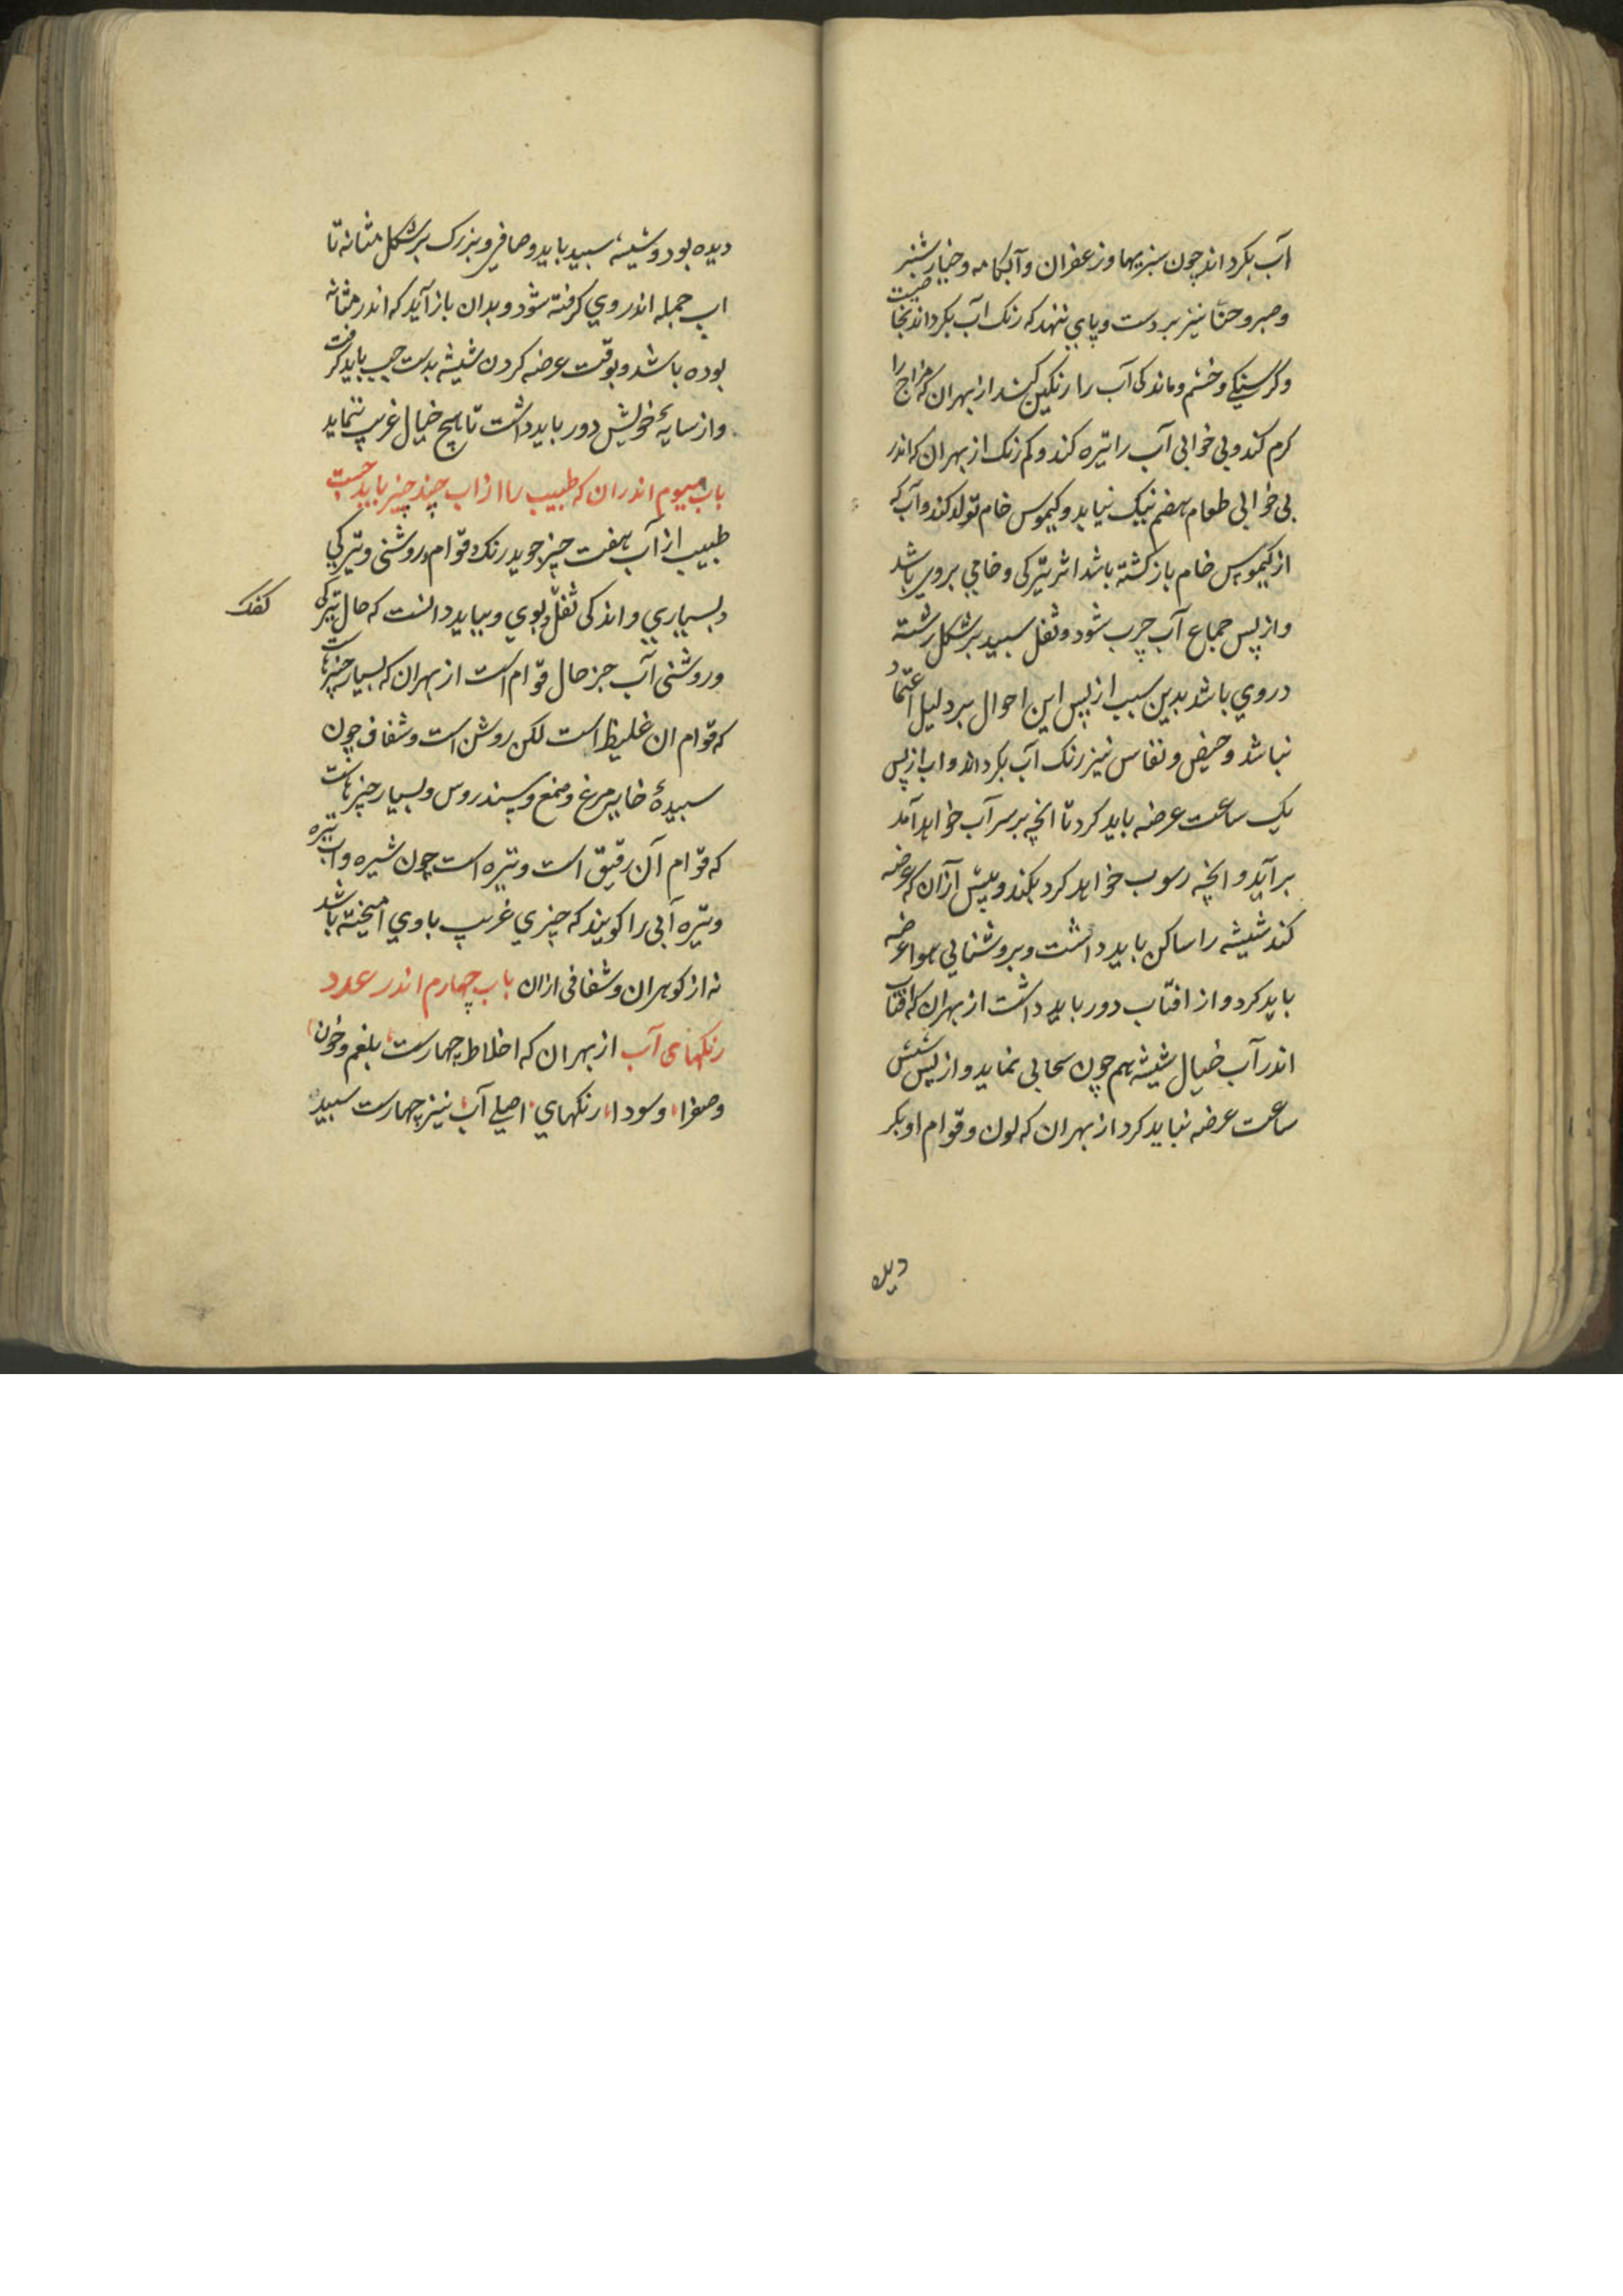 آب بکرداند چون سبزیها و زعفران و آبکامه و خیارشنبر
و صبر و حنّا نیز بر دست و پای ننهد که رنک آب بکرداند بخاصیت
و کرسنکی و خشم و ماندکی آب را رنکین کند از بهر ان که مزاج را
کرم کند و بی خوابی آب را تیره کند و کم رنک از بهر ان که اندر
بی خوابی طعام هضم نیک نیابد و کیموس خام تولد کند و آب که
از کیموس خام بازکشته باشد اثر تیرکی و خامی بر وی باشد
و از پس جماع آب چرب شود و ثفل سبید بر شکل رشته
در وی باشد بدین سبب از پس این احوال بر دلیل اعتماد
نباشد و حیض و نفاس نیز رنک آب بکرداند و اب از پس
یک ساعت عرضه باید کرد تا انچه بر سر آب خواهد آمد
برآید و انچه رسوب خواهد کرد بکند و پیش از آن که عرضه
کند شیشه را ساکن باید داشت و بروشنایی هوا عرضه
باید کرد و از افتاب دور باید داشت از بهر ان که افتاب
اندر آب خیال شیشه هم چون سحابی نماید و از پس شش
ساعت عرضه نباید کرد از بهر ان که لون و قوام او بکر
دیده
دیده بود و شیشه سبید باید و صافی و بزرک بر شکل مثانه تا
اب جمله اندر وی کرفته شود و بدان باز آید که اندر مثانه
بوده باشد و بوقت عرضه کردن شیشه بدست چپ باید کرفت
و از سایهٔ خویش دور باید داشت تا هیچ خیال غریب ننماید
باب سیوم اندر ان که طبیب را از اب چند چیز باید جست
طبیب از آب هفت چیز جوید رنک و قوام و روشنی و تیرکی
و بسیاری و اندکی ثفل و بوی و بباید دانست که حال تیرکی
کفک
و روشنی آب جز حال قوام است از بهر ان که بسیار چیزهاست
که قوام ان غلیظ است لکن روشن است و شفاف چون
سبیدهٔ خایه مرغ و صمغ و سندروس و بسیار چیزهاست
که قوام آن رقیق است و تیره است چون شیره و اب تیره
و تیره آبی را کویند که چیزی غریب با وی امیخته باشد
نه از کوهر ان و شفافی از ان باب چهارم اندر عدد
رنکهای آب از بهر ان که اخلاط چهارست بلغم و خون
و صفرا و سودا رنکهای اصلی آب نیز چهارست سبید